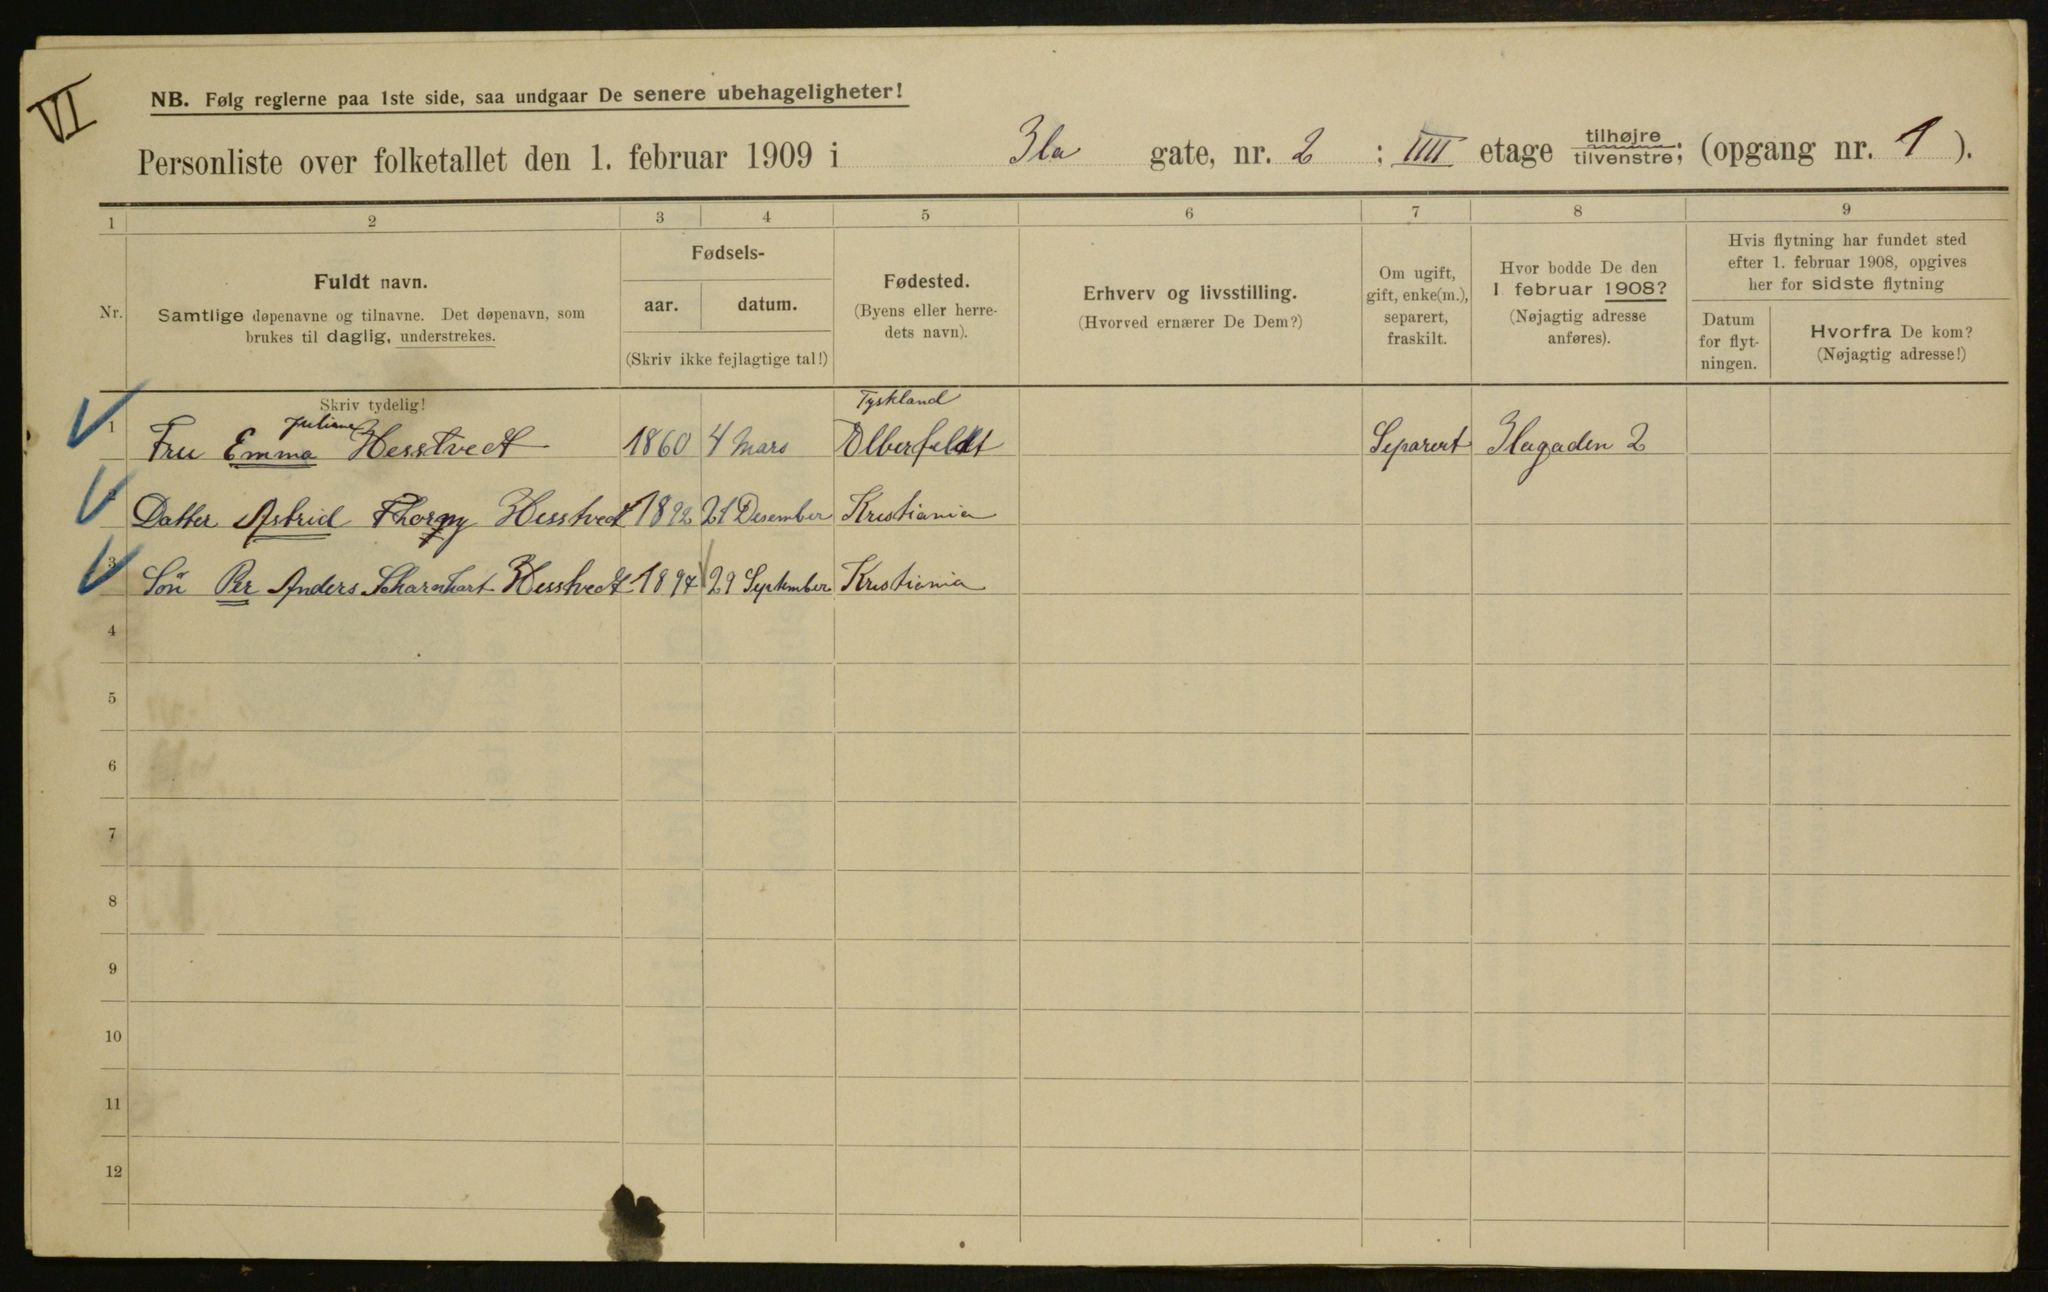 VI
NB. Følg reglerne paa 1ste side, saa undgaar De senere ubehageligheter!
Personliste over folketallet den 1. februar 1909 i Ila gate, nr. 2 ; IIII etage tilhøjre tilvenstre; (opgang nr. 1 ).
1 2 3 4 5 6 7 8 9
Nr.
Fuldt navn.
Samtlige døpenavne og tilnavne. Det døpenavn, som
brukes til daglig, understrekes.
Fødsels-
aar. datum.
(Skriv ikke fejlagtige tal!)
Fødested.
(Byens eller herre-
dets navn).
Erhverv og livsstilling.
(Hvorved ernærer De Dem?)
Om ugift,
gift, enke(m.),
separert,
fraskilt.
Hvor bodde De den
1 februar 1908?
(Nøjagtig adresse
anføres).
Hvis flytning har fundet sted
efter 1. februar 1908, opgives
her for sidste flytning
Datum
for flyt-
ningen.
Hvorfra De kom?
(Nøjagtig adresse!)
Skriv tydelig!
Juliane Tyskland
1 Fru Emma Hesstvedt 1860 4 Mars Elberfeldt Separert Ilagaden 2
2 Datter Astrid Thorny Hesstvedt 1892 21 Desember Kristiania
3 Sön Per Anders Scharnhart Hesstvedt 1894 29 September Kristiania
4
5
6
7
8
9
10
11
12